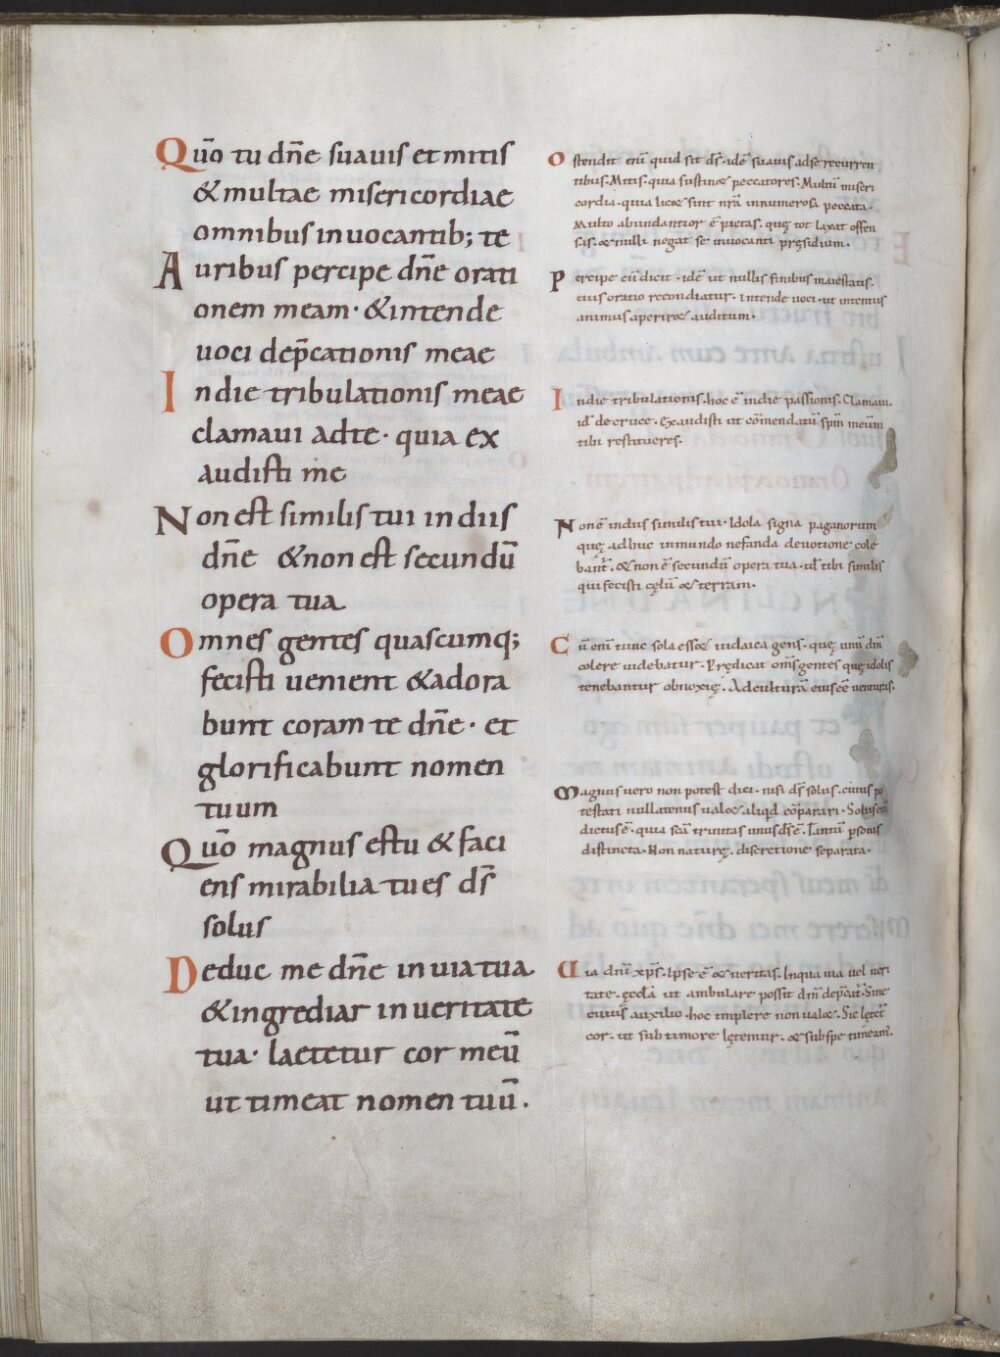 Quō tu dn̄e suauis et mitis
& multae misericordiae
omnibus inuocantib; te
Auribus percipe dn̄e orati
onem meam · & intende
uoci dep̄cationis meae
In die tribulationis meae
clamaui ad te · quia ex
audisti me
Non est similis tui in diis
dn̄e & non est secundū
opera tua
Omnes gentes quascumq;
fecisti uenient & adora
bunt coram te dn̄e · et
glorificabunt nomen
tuum
Quō magnus es tu & faci
ens mirabilia tu es ds̄
solus
Deduc me dn̄e in uia tua
& ingrediar in ueritate
tua · laetetur cor meū
ut timeat nomen tuū .
Ostendit enī quid sit ds̄ · idē suauis ad se recurren
tibus · Mitis · quia sustin& peccatores · Multū miseri
cordia · quia lic& sint nrā innumerosa peccata ·
Multo abundantior ē pietas · quę tot laxat offen
sis · & nulli negat se inuocanti pręsidium ·
Percipe cū dicit · idē ut nullis finibus maiestatis ·
eius oratio recondiatur · intende uoci · ut intentus
animus aperir& auditum ·
In die tribulationis · hoc ē in die passionis · Clamaui ·
id ē de cruce · Exaudisti ut cōmendatū spm̄ meum
tibi restitueres ·
Non ē in diis similis tui · Idola signa paganorum
quę adhuc in mundo nefanda deuotione cole
bant̄ · & non ē secundū opera tua · id ē tibi similis
qui fecisti cęlū & terram ·
Cū enī tunc sola ess& iudaica gens · quę unū dm̄
colere uidebatur · Prędicat oms̄ gentes quę idolis
tenebantur obnoxię · Ad culturā eius eē uenturas ·
Magnus uero non potest dici · nisi ds̄ solus · cuius po
testati nullatenus ual& aliqd cōparari · Solus etiā
dictus ē · quia scā trinitas unus ds̄ ē · Tantū psonis
distincta · Non naturę · discretione separata ·
Uia dn̄i xp̄s · Ipse ē & ueritas · In qua uia uel ueri
tate · ęccłā ut ambulare possit dn̄m dep̄cat̄ · Sine
cuius auxilio · hoc implere non ual& · Sic lętet̄
cor · ut sub timore lętemur · & sub spe timeam̄ ·